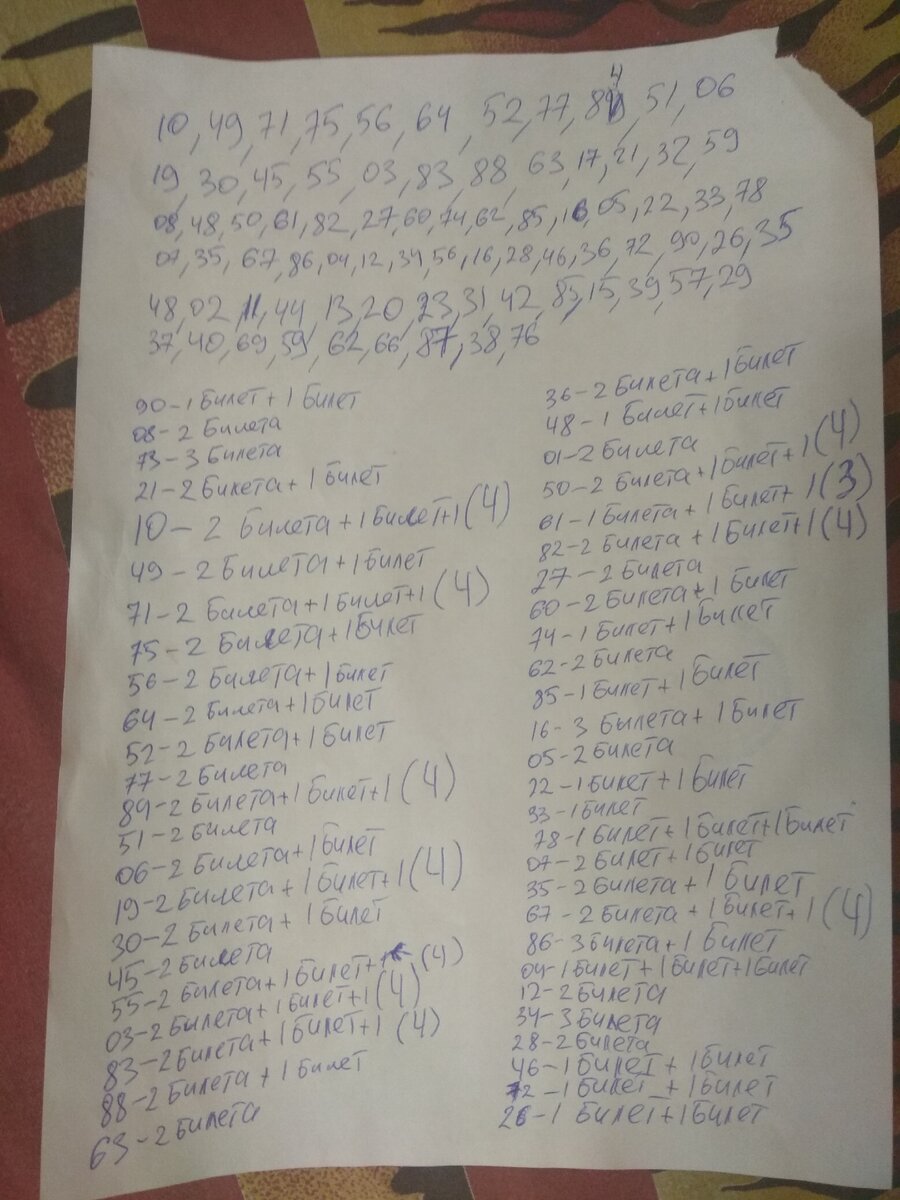 10, 49, 71, 75, 56, 64, 52, 77, 84, 51, 06
19, 30, 45, 55, 03, 83, 88, 63, 17, 21, 32, 59
08, 48, 50, 61, 82, 27, 60, 74, 62, 85, 16, 05, 22, 33, 78
07, 35, 67, 86, 04, 12, 34, 56, 16, 28, 46, 36, 72, 90, 26, 35
48, 02, 11, 44, 13, 20, 23, 31, 42, 85, 15, 39, 57, 29
37, 40, 69, 59, 62, 66, 87, 38, 76
90-1 билет + 1 билет
08-2 билета
73-3 билета
21-2 билета + 1 билет
10-2 билета + 1 билет+1 (4)
49-2 билета + 1 билет
71-2 билета+1 билет+1 (4)
75-2 билета + 1 билет
56-2 билета + 1 билет
64-2 билета+1 билет
52-2 билета + 1 билет
77-2 билета
89-2 билета+1 билет+1 (4)
51-2 билета
06-2 билета+1 билет
19-2 билета + 1 билет+1 (4)
30-2 билета + 1 билет
45-2 билета
55-2 билета+1 билет+1 (4)
03-2 билета+1 билет+1 (4)
83-2 билета+1 билет+1 (4)
88-2 билета + 1 билет
63-2 билета
36-2 билета+1 билет
48-1 билет+1 билет
01-2 билета
50-2 билета+1 билет+1 (4)
61-1 билета+1 билет+1 (3)
82-2 билета +1 билет+1 (4)
27-2 билета
60-2 билета+1 билет
74-1 билет+1 билет
62-2 билета
85-1 билет+1 билет
16-3 билета+1 билет
05-2 билета
22-1 билет+1 билет
33-1 билет
78-1 билет+1 билет+1 билет
07-2 билет+1 билет
35-2 билета+1 билет
67-2 билета+1 билет+1 (4)
86-3 билета+1 билет
04-1 билет+1 билет+1 билет
12-2 билета
34-3 билета
28-2 билета
46-1 билет + 1 билет
72-1 билет +1 билет
26-1 билет+1 билет